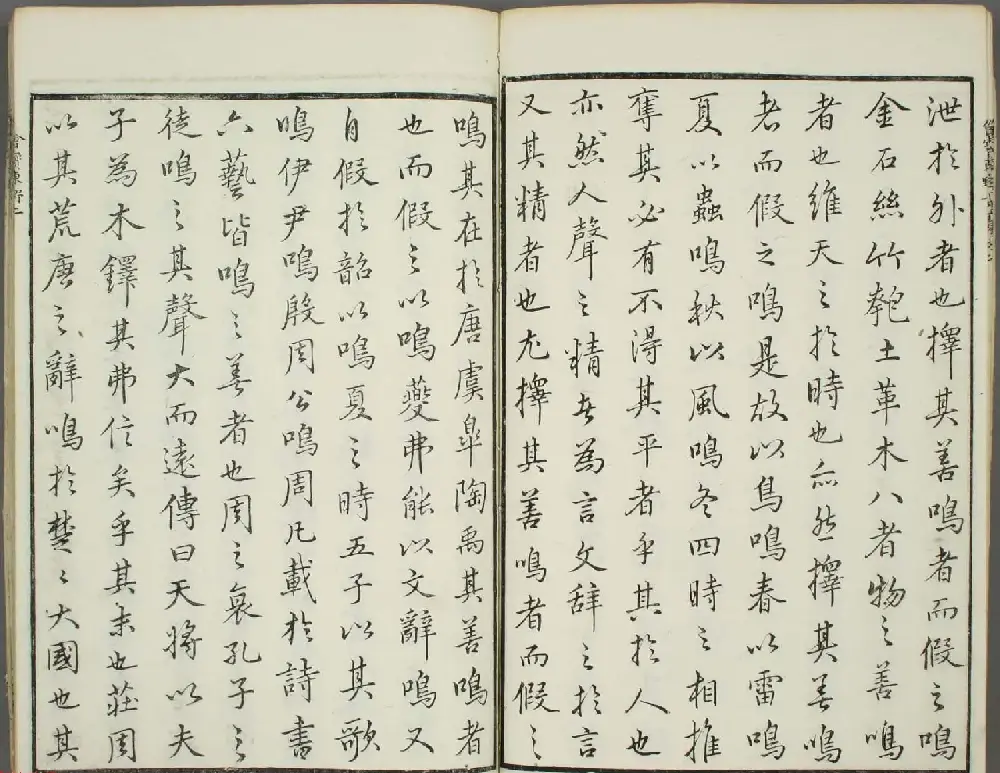 泄於外者也擇其善鳴者而假之鳴
金石絲竹匏土革木八者物之善鳴
者也維天之於時也亦然擇其善鳴
者而假之鳴是故以鳥鳴春以雷鳴
夏以蟲鳴秋以風鳴冬四時之相推
奪其必有不得其平者乎其於人也
亦然人聲之精者為言文辞之於言
又其精者也尤擇其善鳴者而假之
鳴其在於唐虞臯陶禹其善鳴者
也而假之以鳴夔弗能以文辭鳴又
自假於韶以鳴夏之時五子以其歌
鳴伊尹鳴殷周公鳴周凡載於詩書
六藝皆鳴之善者也周之衰孔子之
徒鳴之其聲大而遠傳曰天將以夫
子為木鐸其弗信矣乎其末也莊周
以其荒唐之辭鳴於楚〻大國也其